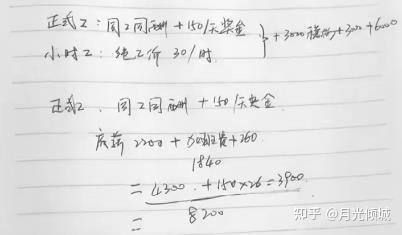 正式工：同工同酬 + 150/天奖金
小时工：纯工价 30/时 } + 3000 + 3000 + 6000
正式工、同工同酬 + 150/天奖金
底薪 2200 + 加班费 + 260
1840
= 4300 + 150×26 = 3900
= 8200
知乎 @月光倾城